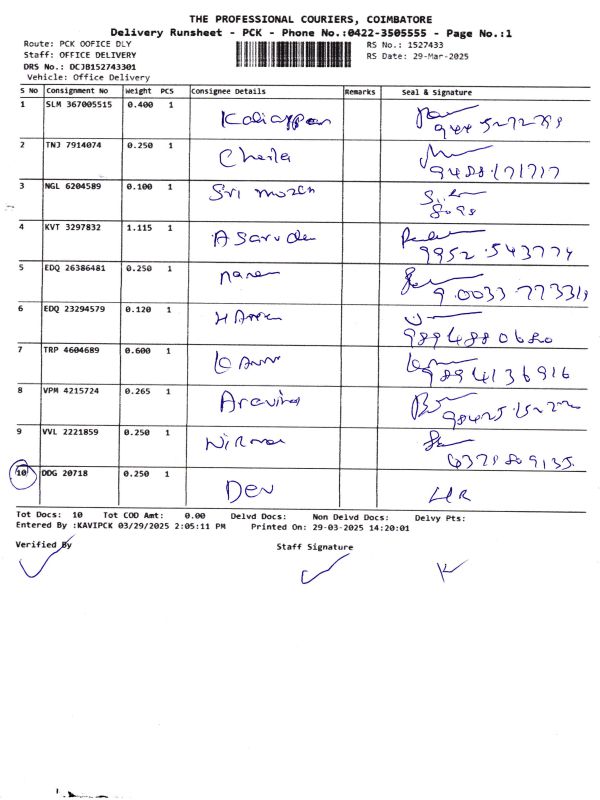 THE PROFESSIONAL COURIERS, COIMBATORE
Delivery Runsheet - PCK - Phone No.:0422-3505555 - Page No.:1
Route: PCK OOFICE DLY
RS No.: 1527433
Staff: OFFICE DELIVERY
RS Date: 29-Mar-2025
DRS No.: DCJB152743301
Vehicle: Office Delivery
S No Consignment No Weight PCS Consignee Details Remarks Seal & Signature
1 SLM 367005515 0.400 1 Kaliappan
2 TNJ 7914074 0.250 1
9488171717
3 NGL 6204589 0.100 1 Sri
8098
4 KVT 3297832 1.115 1
9952 543774
5 EDQ 26386481 0.250 1 naren
6 EDQ 23294579 0.120 1
9894880680
7 TRP 4604689 0.600 1
9894136916
8 VPM 4215724 0.265 1 Aravind
9 VVL 2221859 0.250 1 Nirmal
10 DDG 20718 0.250 1 Dev
Tot Docs: 10 Tot COD Amt: 0.00 Delvd Docs: Non Delvd Docs: Delvy Pts:
Entered By :KAVIPCK 03/29/2025 2:05:11 PM Printed On: 29-03-2025 14:20:01
Verified By
Staff Signature